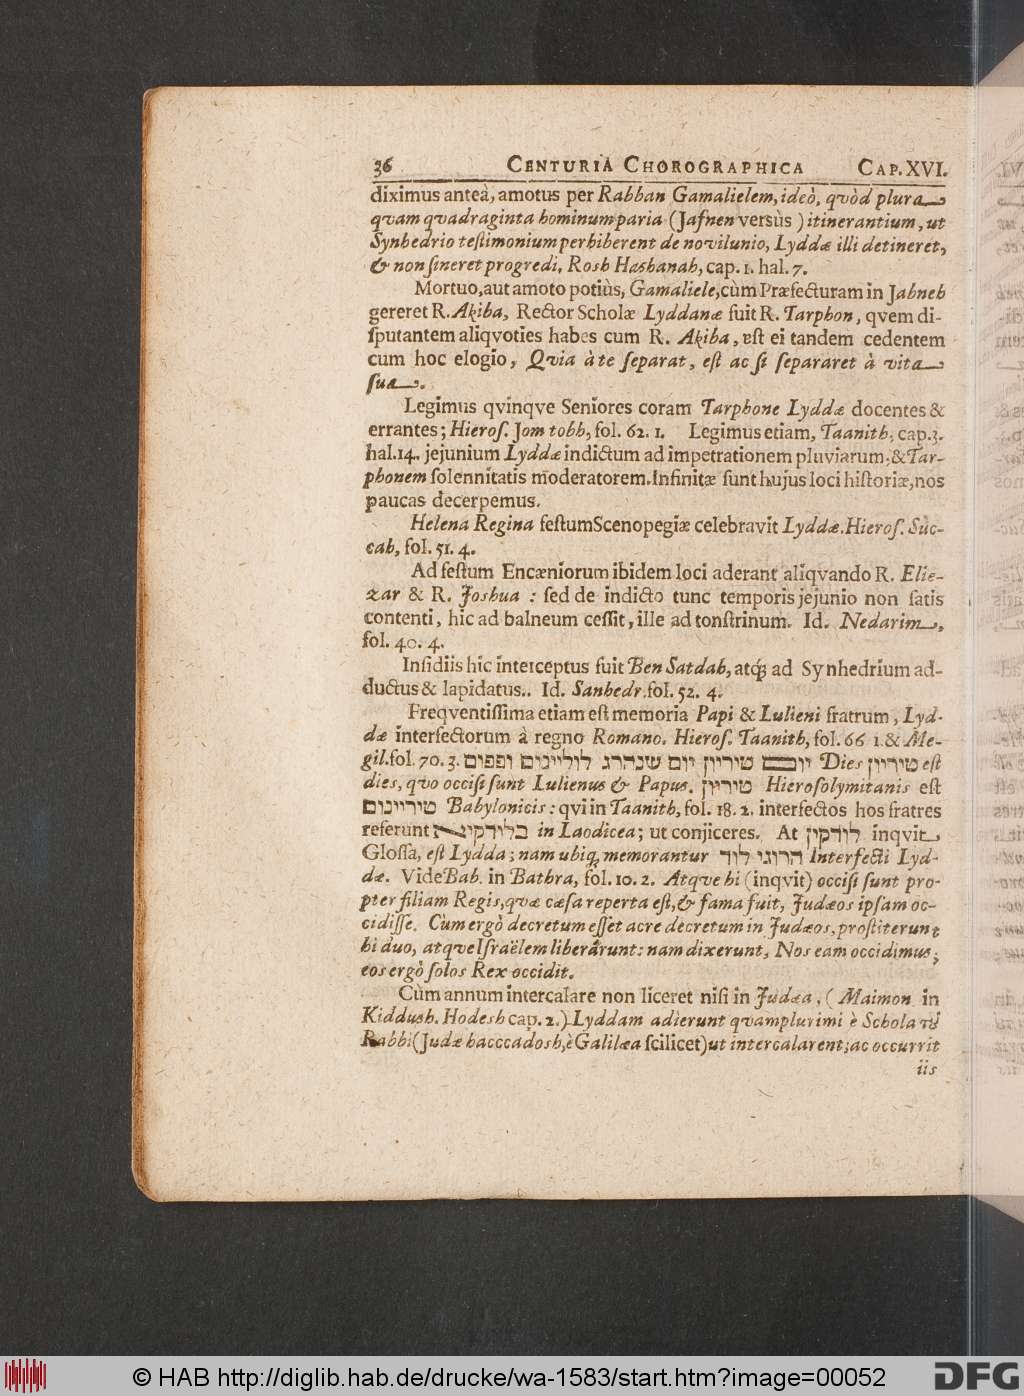 36 CENTURIA CHOROGRAPHICA CAP. XVI.
diximus anteà, amotus per Rabban Gamalielem, ideò, qvòd plura
qvam qvadraginta hominum paria (Jafnen versùs) itinerantium, ut
Synhedrio teſtimonium perhiberent de novilunio, Lyddæ illi detineret,
& non ſineret progredi, Rosh Hashanah, cap. 1. hal. 7.
Mortuo, aut amoto potiùs, Gamaliele, cùm Præfecturam in Jabneh
gereret R. Akiba, Rector Scholæ Lyddanæ fuit R. Tarphon, qvem di-
ſputantem aliqvoties habes cum R. Akiba, eſt ei tandem cedentem
cum hoc elogio, Qvia à te ſeparat, eſt ac ſi ſepararet à vita
ſua.
Legimus qvinqve Seniores coram Tarphone Lyddæ docentes &
errantes; Hieroſ. Jom tobh, fol. 62. 1. Legimus etiam, Taanith, cap. 3.
hal. 14. jejunium Lyddæ indictum ad impetrationem pluviarum, & Tar-
phonem ſolennitatis moderatorem. Infinitæ ſunt hujus loci hiſtoriæ, nos
paucas decerpemus.
Helena Regina feſtum Scenopegiæ celebravit Lyddæ. Hieroſ. Suc-
cah, fol. 51. 4.
Ad feſtum Encæniorum ibidem loci aderant aliqvando R. Elie-
zar & R. Joshua : ſed de indicto tunc temporis jejunio non ſatis
contenti, hic ad balneum ceſſit, ille ad tonſtrinum. Id. Nedarim,
fol. 40. 4.
Inſidiis hic interceptus fuit Ben Satdah, atq; ad Synhedrium ad-
ductus & lapidatus.. Id. Sanhedr. fol. 52. 4.
Freqventiſſima etiam eſt memoria Papi & Lulieni fratrum, Lyd-
dæ interfectorum à regno Romano. Hieroſ. Taanith, fol. 66 1. & Me-
gil. fol. 70. 3. יום טיריון יום שנהרג לולייינוס ופפוס Dies טיריון eſt
dies, qvo occiſi ſunt Lulienus & Papus. טיריון Hieroſolymitanis eſt
טיריינוס Babylonicis: qvi in Taanith, fol. 18. 2. interfectos hos fratres
referunt בלודקיא in Laodicea; ut conjiceres. At לודקין inqvit
Gloſſa, eſt Lydda; nam ubiq; memorantur הרוגי לוד Interfecti Lyd-
dæ. Vide Bab. in Bathra, fol. 10. 2. Atqve hi (inqvit) occiſi ſunt pro-
pter filiam Regis, qvæ cæſa reperta eſt, & fama fuit, Judæos ipſam oc-
cidiſſe. Cùm ergò decretum eſſet acre decretum in Judæos, proſtiterunt
hi duo, atqve Iſraëlem liberârunt: nam dixerunt, Nos eam occidimus;
eos ergò ſolos Rex occidit.
Cùm annum intercalare non liceret niſi in Judæa, (Maimon in
Kiddush. Hodesh cap. 2.) Lyddam adierunt qvamplurimi è Schola τῦ
Rabbi (Judæ hacccadosh, è Galilæa ſcilicet) ut intercalarent; ac occurrit
iis
© HAB http://diglib.hab.de/drucke/wa-1583/start.htm?image=00052
DFG